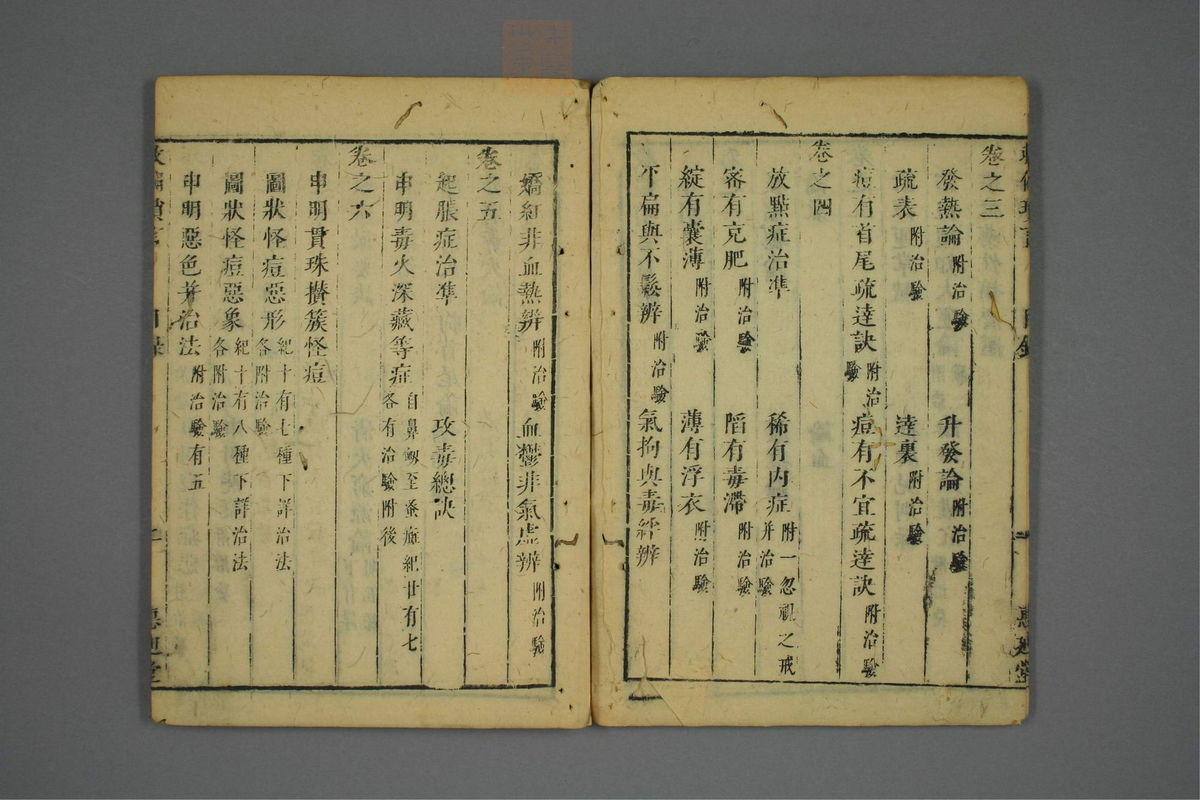 卷之三
發熱論附治驗 升發論附治驗
疏表附治驗 達裏附治驗
痘有首尾疏達訣附治驗 痘有不宜疏達訣附治驗
卷之四
放點症治準 稀有内症附一忽視之戒并治驗
密有克肥附治驗 陷有毒滯附治驗
綻有囊薄附治驗 薄有浮衣附治驗
不扁與不鬆辨附治驗 氣拘與毒絆辨
一
惠迪堂
嬌紅非血熱辨附治驗 血鬱非氣虛辨附治驗
卷之五
起脹症治準 攻毒總訣
申明毒火深藏等症自鼻衂至蚤癍紀廿有七各有治驗附後
卷之六
申明貫珠攢簇怪痘
圖狀怪痘惡形紀十有七種下詳治法各附治驗
圖狀怪痘惡象紀十有八種下詳治法各附治驗
申明惡色并治法附治驗有五
二
惠迪堂